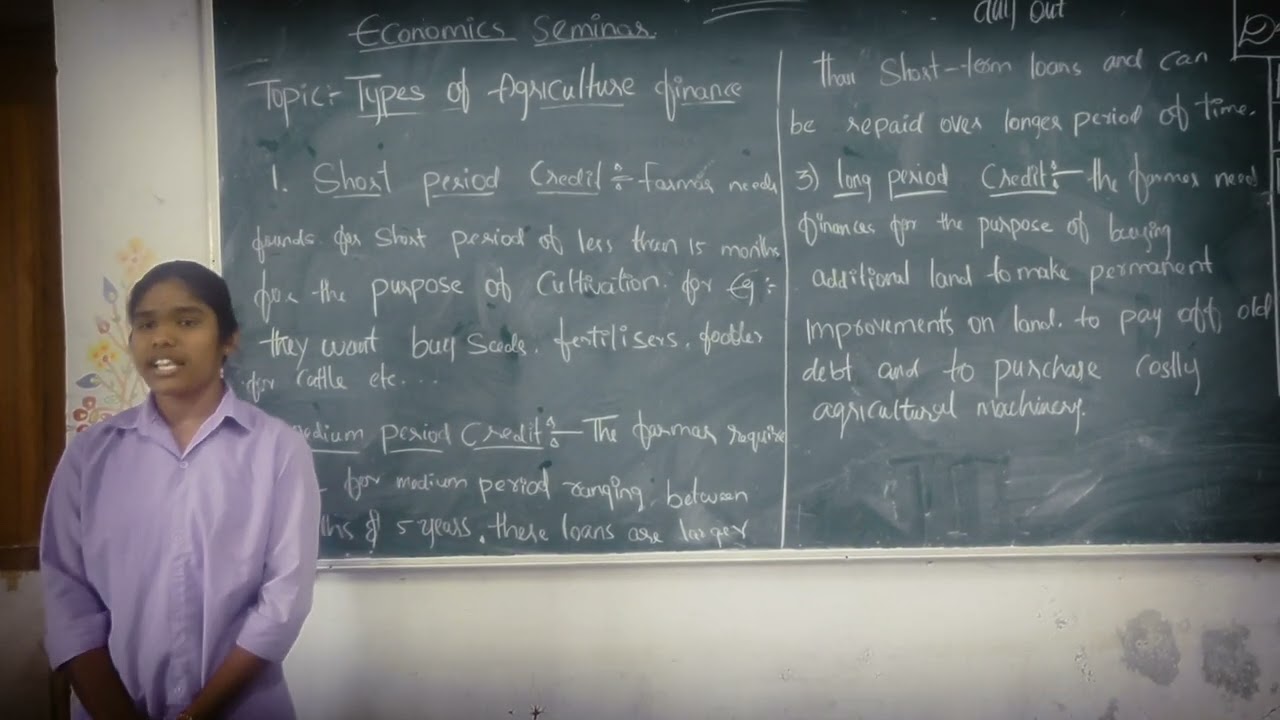 Economics Seminar
Topic:- Types of Agriculture finance
1. Short period Credit :- farmar needs
founds for short period of less than 15 months
for the purpose of Cultivation. for Eg :-
they want buy seeds, fertilisers, fodder
for cattle etc....
edium period Credit :- The farmar require
for medium period ranging between
ths & 5 years. these loans are larger
than Short-term loans and can
be repaid over longer period of time.
3) long period Credit :- the farmer need
finances for the purpose of buying
additional land to make permanent
Improvements on land. to pay off old
debt and to purchase costly
agricultural machinery.
out